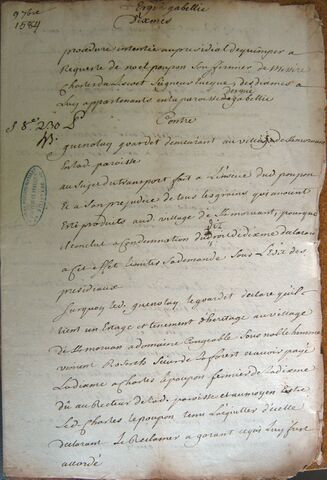 9 7bre
1584
Ergué gabellic
Dixmes
procedure intentée au presidial de quimper a
Requeste de noel poupon Son fermier de Messire
Charles du Seigneur Eveque, des dixmes a
Luy appartenants en la paroisse de gabellic
Contre
guenolay goardet demeurant au village de Kmorvan
En lad. paroisse
au Sujet du transport fait a L'inscue dud poupon
& a Son prejudice de tous les grains qui avoient
Eté produits aud village de Kmorvan, pourquoy
il conclut a Condemnation du
a cet effet sa demande Sous L'edit des
presidiaux
Surquoy led. guenolay le goardet declare qu'il
tient un Estage et tenement d'heritage au village
de Kmorvan a domaine Congeable Sous noble homme
vincent Sieur de et avoir payé
La dixme a Charles le poupon fermier de La dixme
dû au Recteur de lad. paroisse et au moyen Estre
Led. Charles le poupon tenu L'acquitter d'icelle
declarant Le Reclamer a garant ce qui Luy fut
accordé